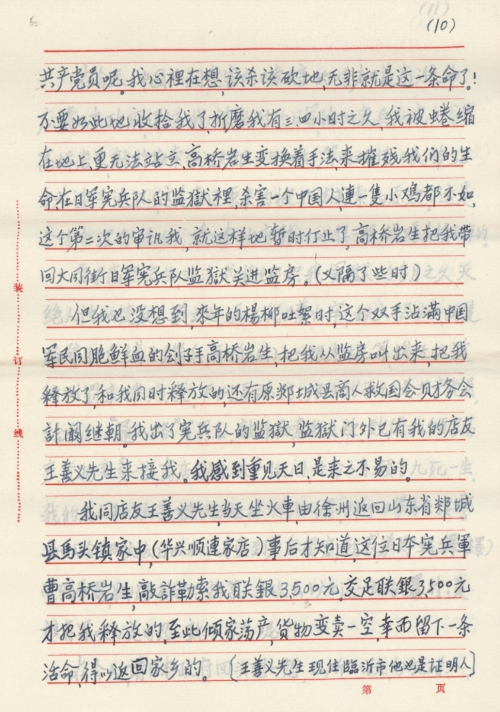 (10)
共产党员呢。我心裡在想,该杀该砍地,无非就是这一条命了!
不要如此地收拾我了,折磨我有三四小时之久,我被蜷缩
在地上,重无法站立,高桥岩生变换着手法来摧残我们的生
命在日軍宪兵队的监獄裡,杀害一个中国人,連一隻小鸡都不如,
这个第二次的审讯我,就这样地暂时仃止了。高桥岩生把我带
回大同街日軍宪兵队监獄关进监房。(又隔了些时)
但我也没想到,来年的楊柳吐絮时,这个双手沾满中国
军民同胞鲜血的刽子手高桥岩生,把我从监房叫出来,把我
释放了,和我同时释放的还有原郯城县商人救国会财务会
计阚继朝。我出了宪兵队的监獄,监獄门外已有我的店友
王善义先生来接我。我感到重见天日,是来之不易的。
我同店友王善义先生,当天坐火車,由徐州返回山东省郯城
县馬头镇家中,(华兴顺連家店)事后才知道,这位日本宪兵軍
曹高桥岩生,敲詐勒索我联銀3,500元,交足联銀3,500元
才把我释放的,至此倾家荡产,货物变卖一空,幸而留下一条
活命,得以返回家乡的。〔王善义先生现住臨沂市他也是证明人〕
装
订
线
第 页